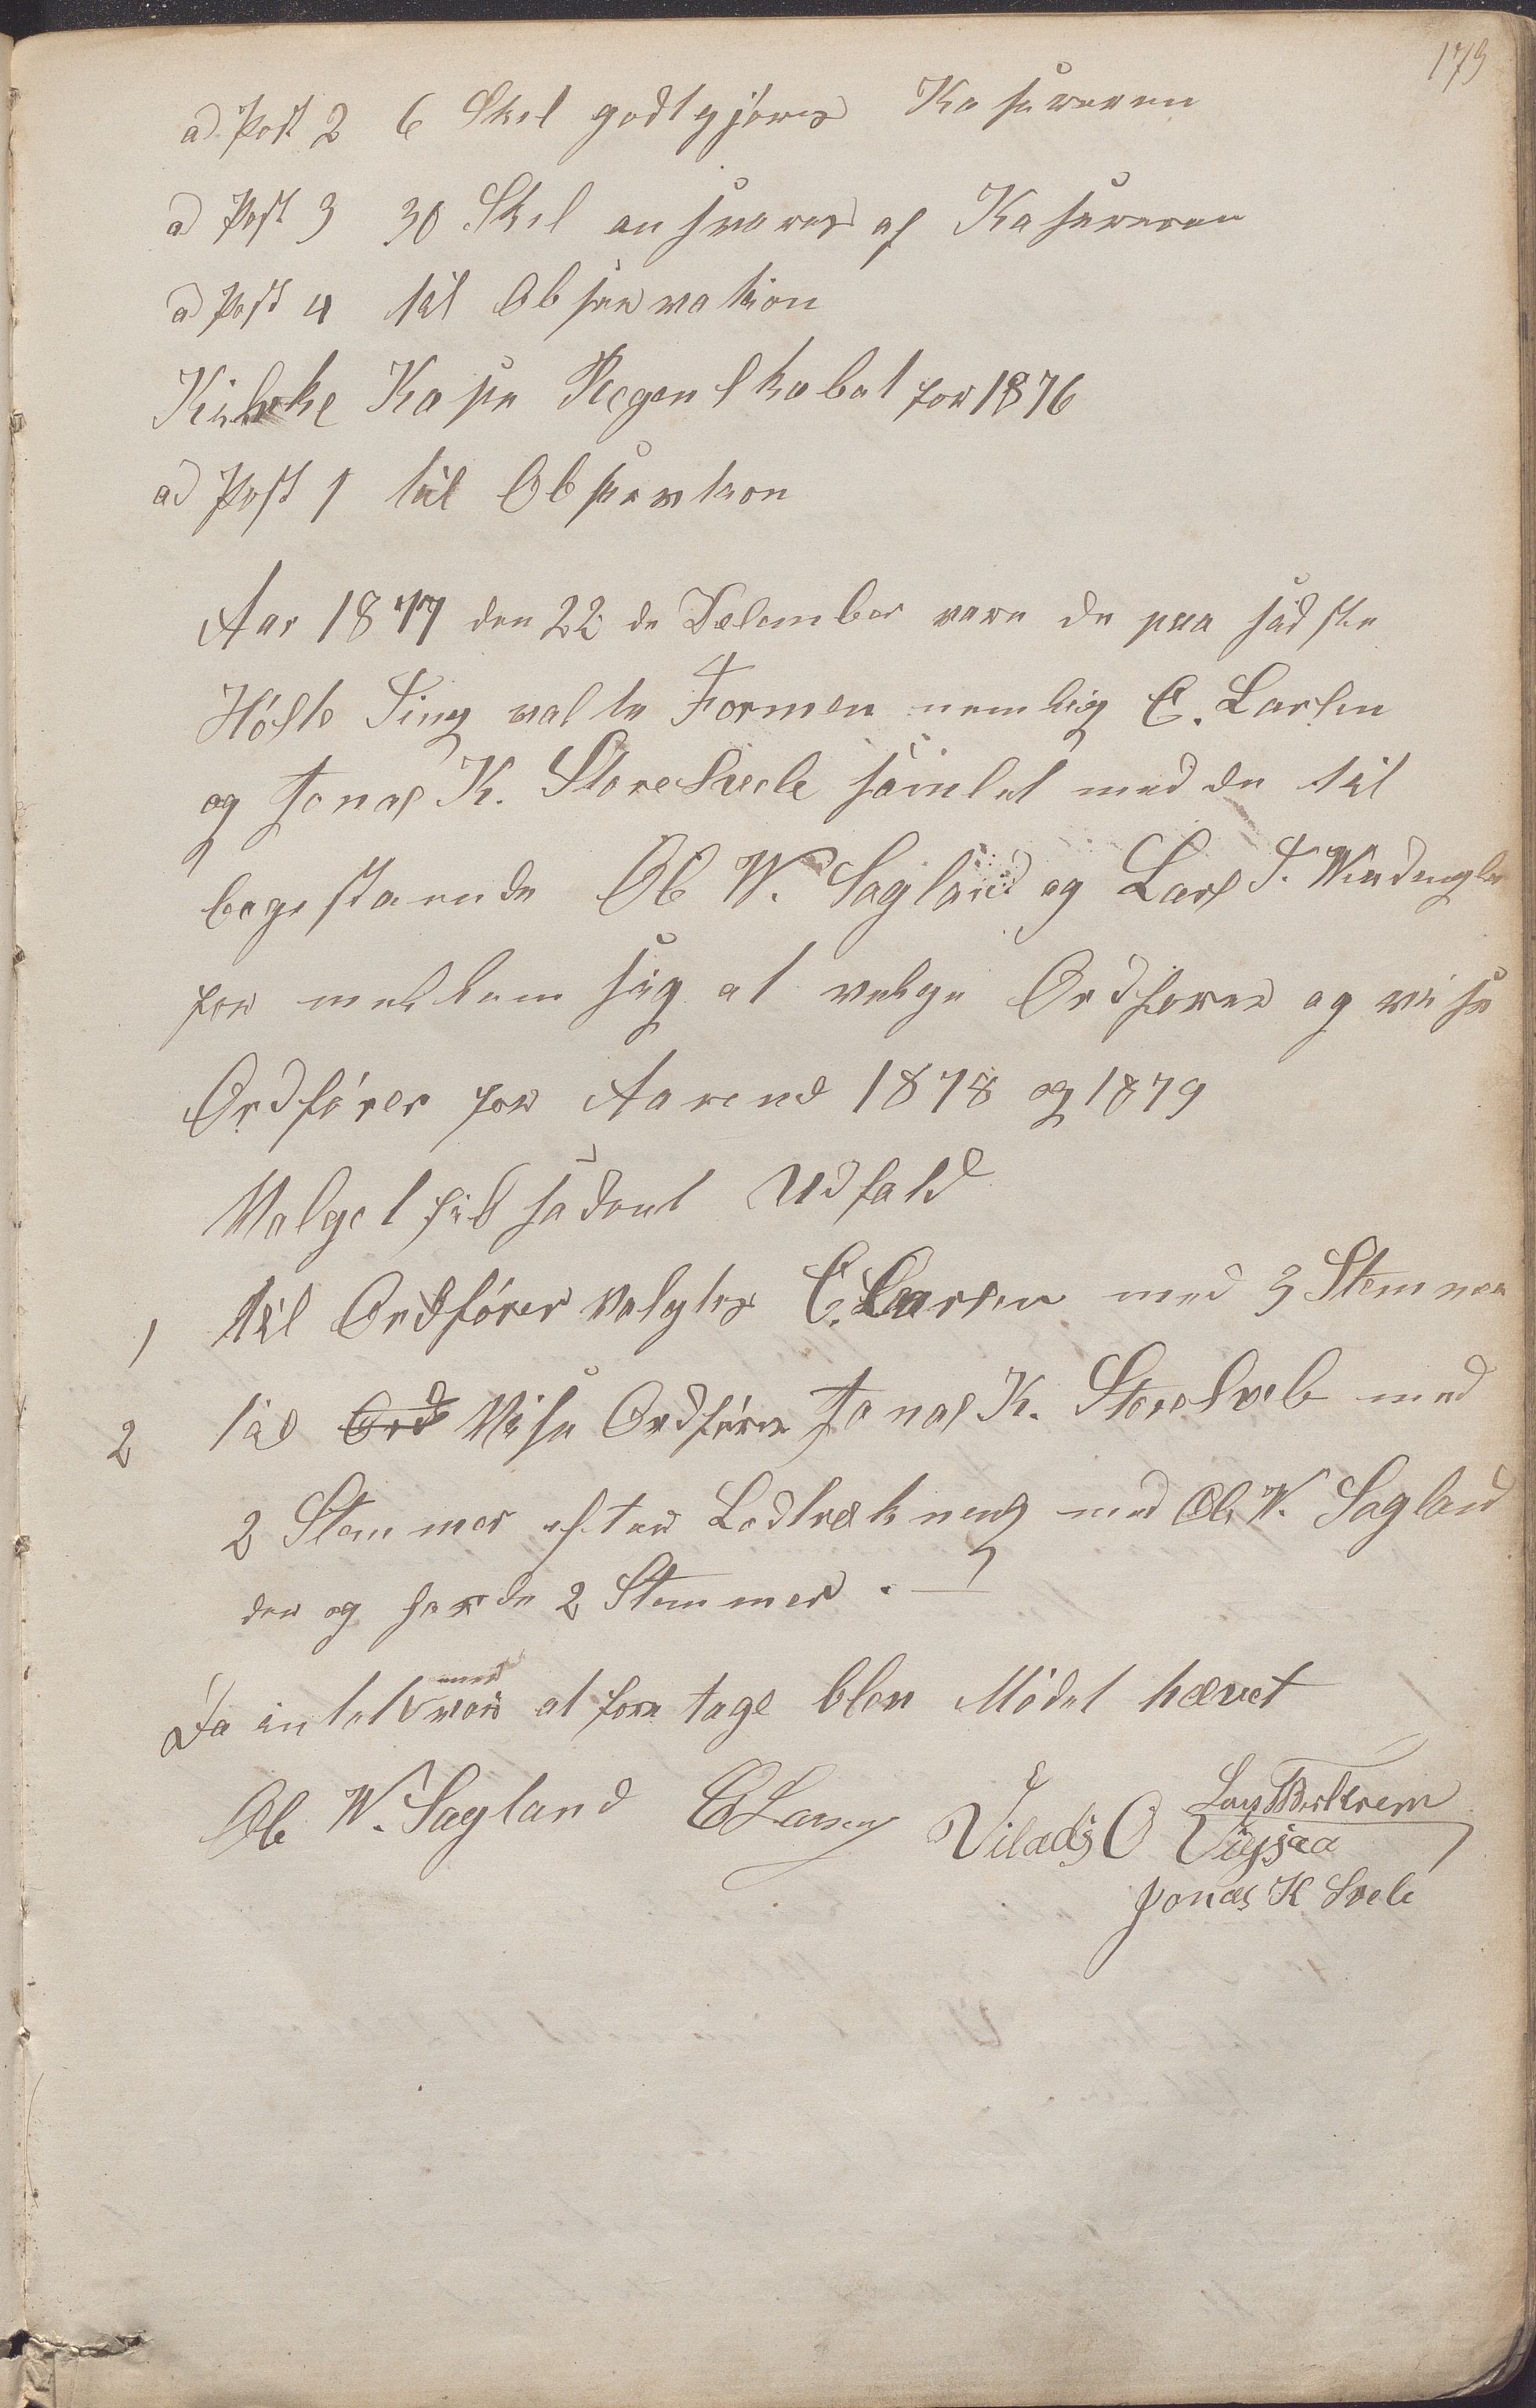 179
ad Post 2 6 Skil godtgjöres Kasereren
ad Post 3 30 Skil ansvares af Kasereren
ad Post 4 til Observation
Kirke Kasse Regenskabet for 1876
ad Post 1 til Obsertion
Aar 1877 den 22de Desember vare de paa sidste
Höste Ting valte Formen nemlig E. Larsen
og Jonas K. StoreSvele samlet med de til
bagestaaende Ole W. Sagland og Lars T.
for mellem sig at velge Ordförer og vise
Ordförer for Aarene 1878 og 1879
Valget fik sadant Udfald
1 til Ordförer valgtes E. Larsen med 3 Stemmer
2 til Ord Vise Ordförer Jonas K. StoreSvele med
2 Stemmer efter Lodtrekning med Ole W. Sagland
der og havde 2 Stemmer. —
Da intet mere var at foretage blev Mödet hævet
Ole W. Sagland E Larsen Vilads O Vigesaa Lars Birkrem
Jonas K Svele